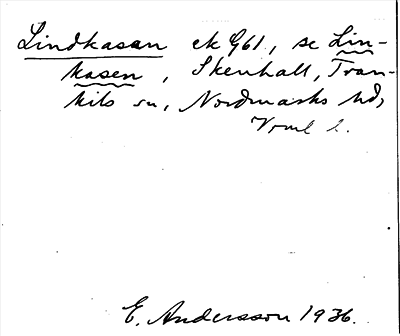 Lindkasan ek G61, se Lin-
kasen, Skenhall, Tran-
kils sn, Nordmarks hd,
Vrml l.
E. Andersson 1936.